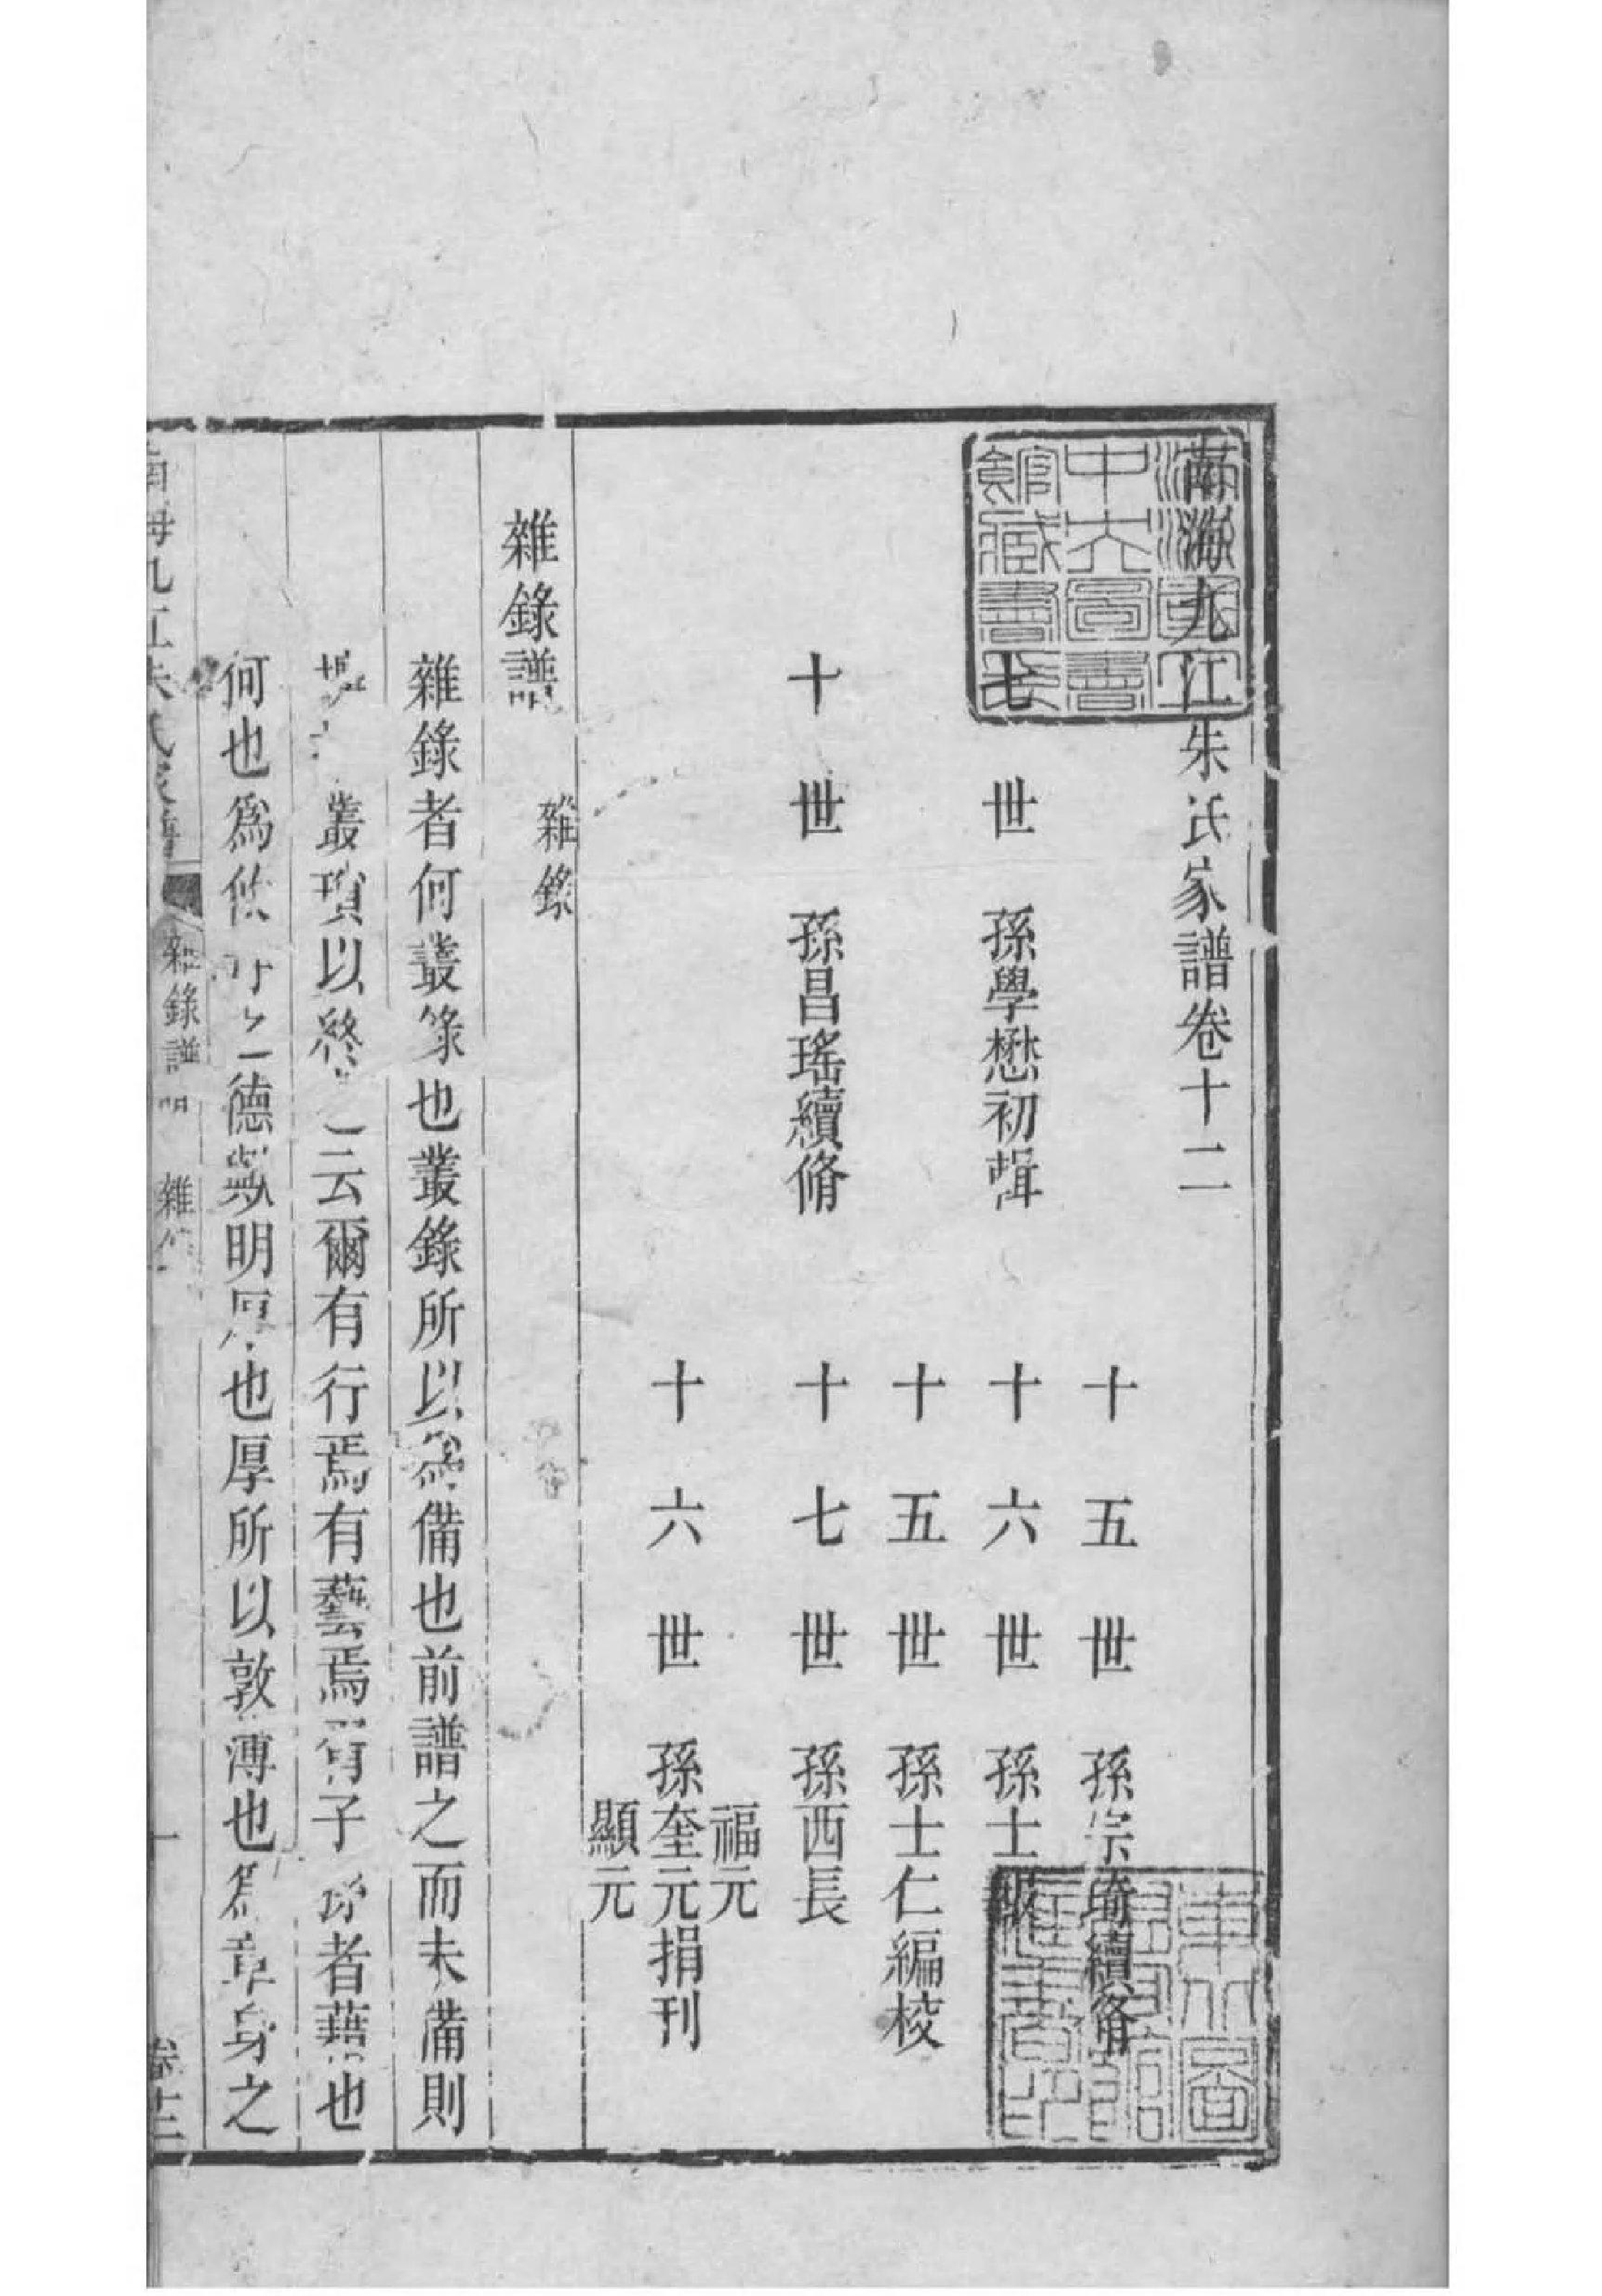 南海九江朱氏家譜卷十二
十五世孫宗琦續脩
七世孫學懋初輯
十六世孫士報
十五世孫士仁編校
十世孫昌瑤續脩
十七世孫西長
福元
十六世孫奎元捐刊
顯元
雜錄譜
雜錄
雜錄者何叢錄也叢錄所以為備也前譜之而未備則
叢瑣以終之云爾有行焉有藝焉子孫者藉也
何也為德數明厚也厚所以敦薄也為章身之
南海九江朱氏家譜
雜錄譜
雜錄
一
卷十二